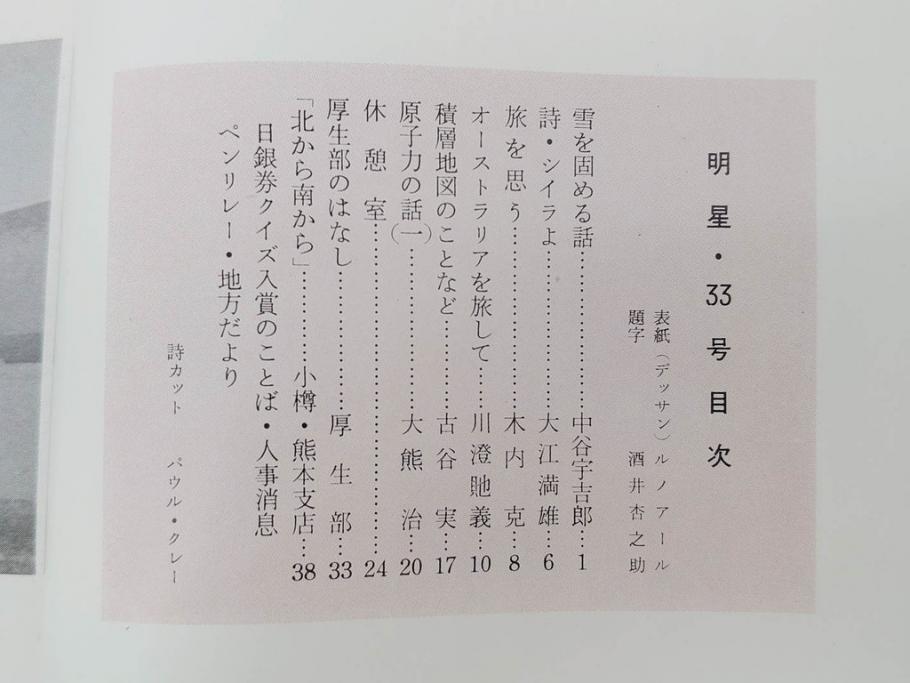 明星・33号目次
表紙（デッサン）ルノアール
題字 酒井杏之助
雪を固める話…………………中谷宇吉郎…1
詩・シイラよ…………………大江満雄…6
旅を思う…………………木内克…8
オーストラリアを旅して……川澄貤義…10
積層地図のことなど…………古谷実…17
原子力の話（一）…………………大熊治…20
休憩室……………………………………24
厚生部のはなし…………………厚生部…33
「北から南から」…………小樽・熊本支店…38
日銀券クイズ入賞のことば・人事消息
ペンリレー・地方だより
詩カット パウル・クレー